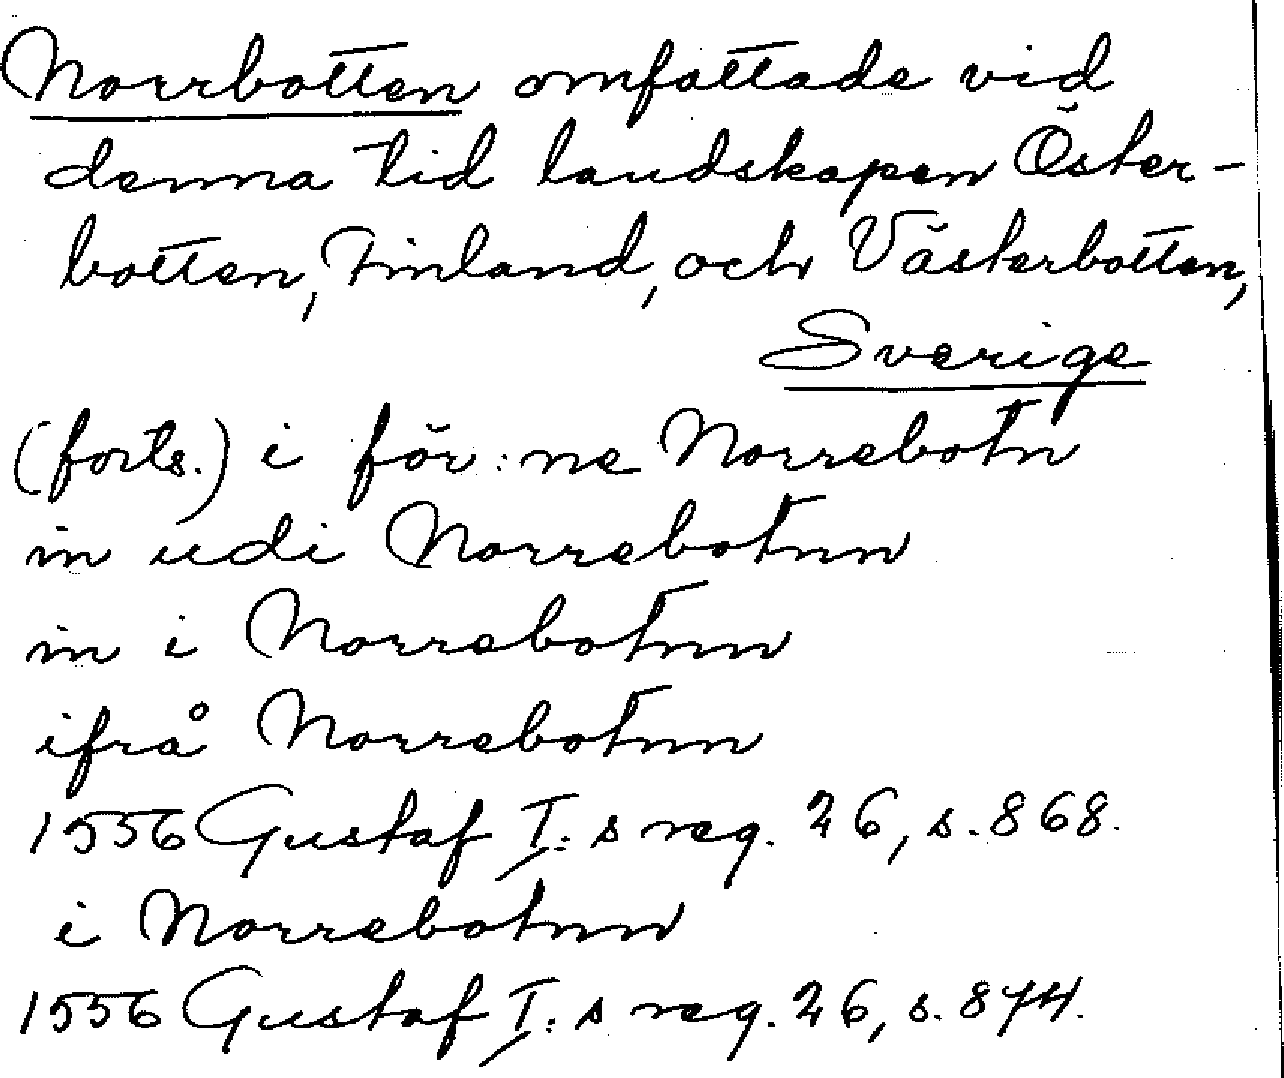 Norrbotten omfattade vid
denna tid landskapen Öster-
botten, Finland, och Västerbotten,
Sverige
(forts.) i för:ne Norrebotn
in udi Norrebotnn
in i Norrebotnn
ifrå Norrebotnn
1556 Gustaf I:s reg. 26, s. 868.
i Norrebotnn
1556 Gustaf I:s reg. 26, s. 874.